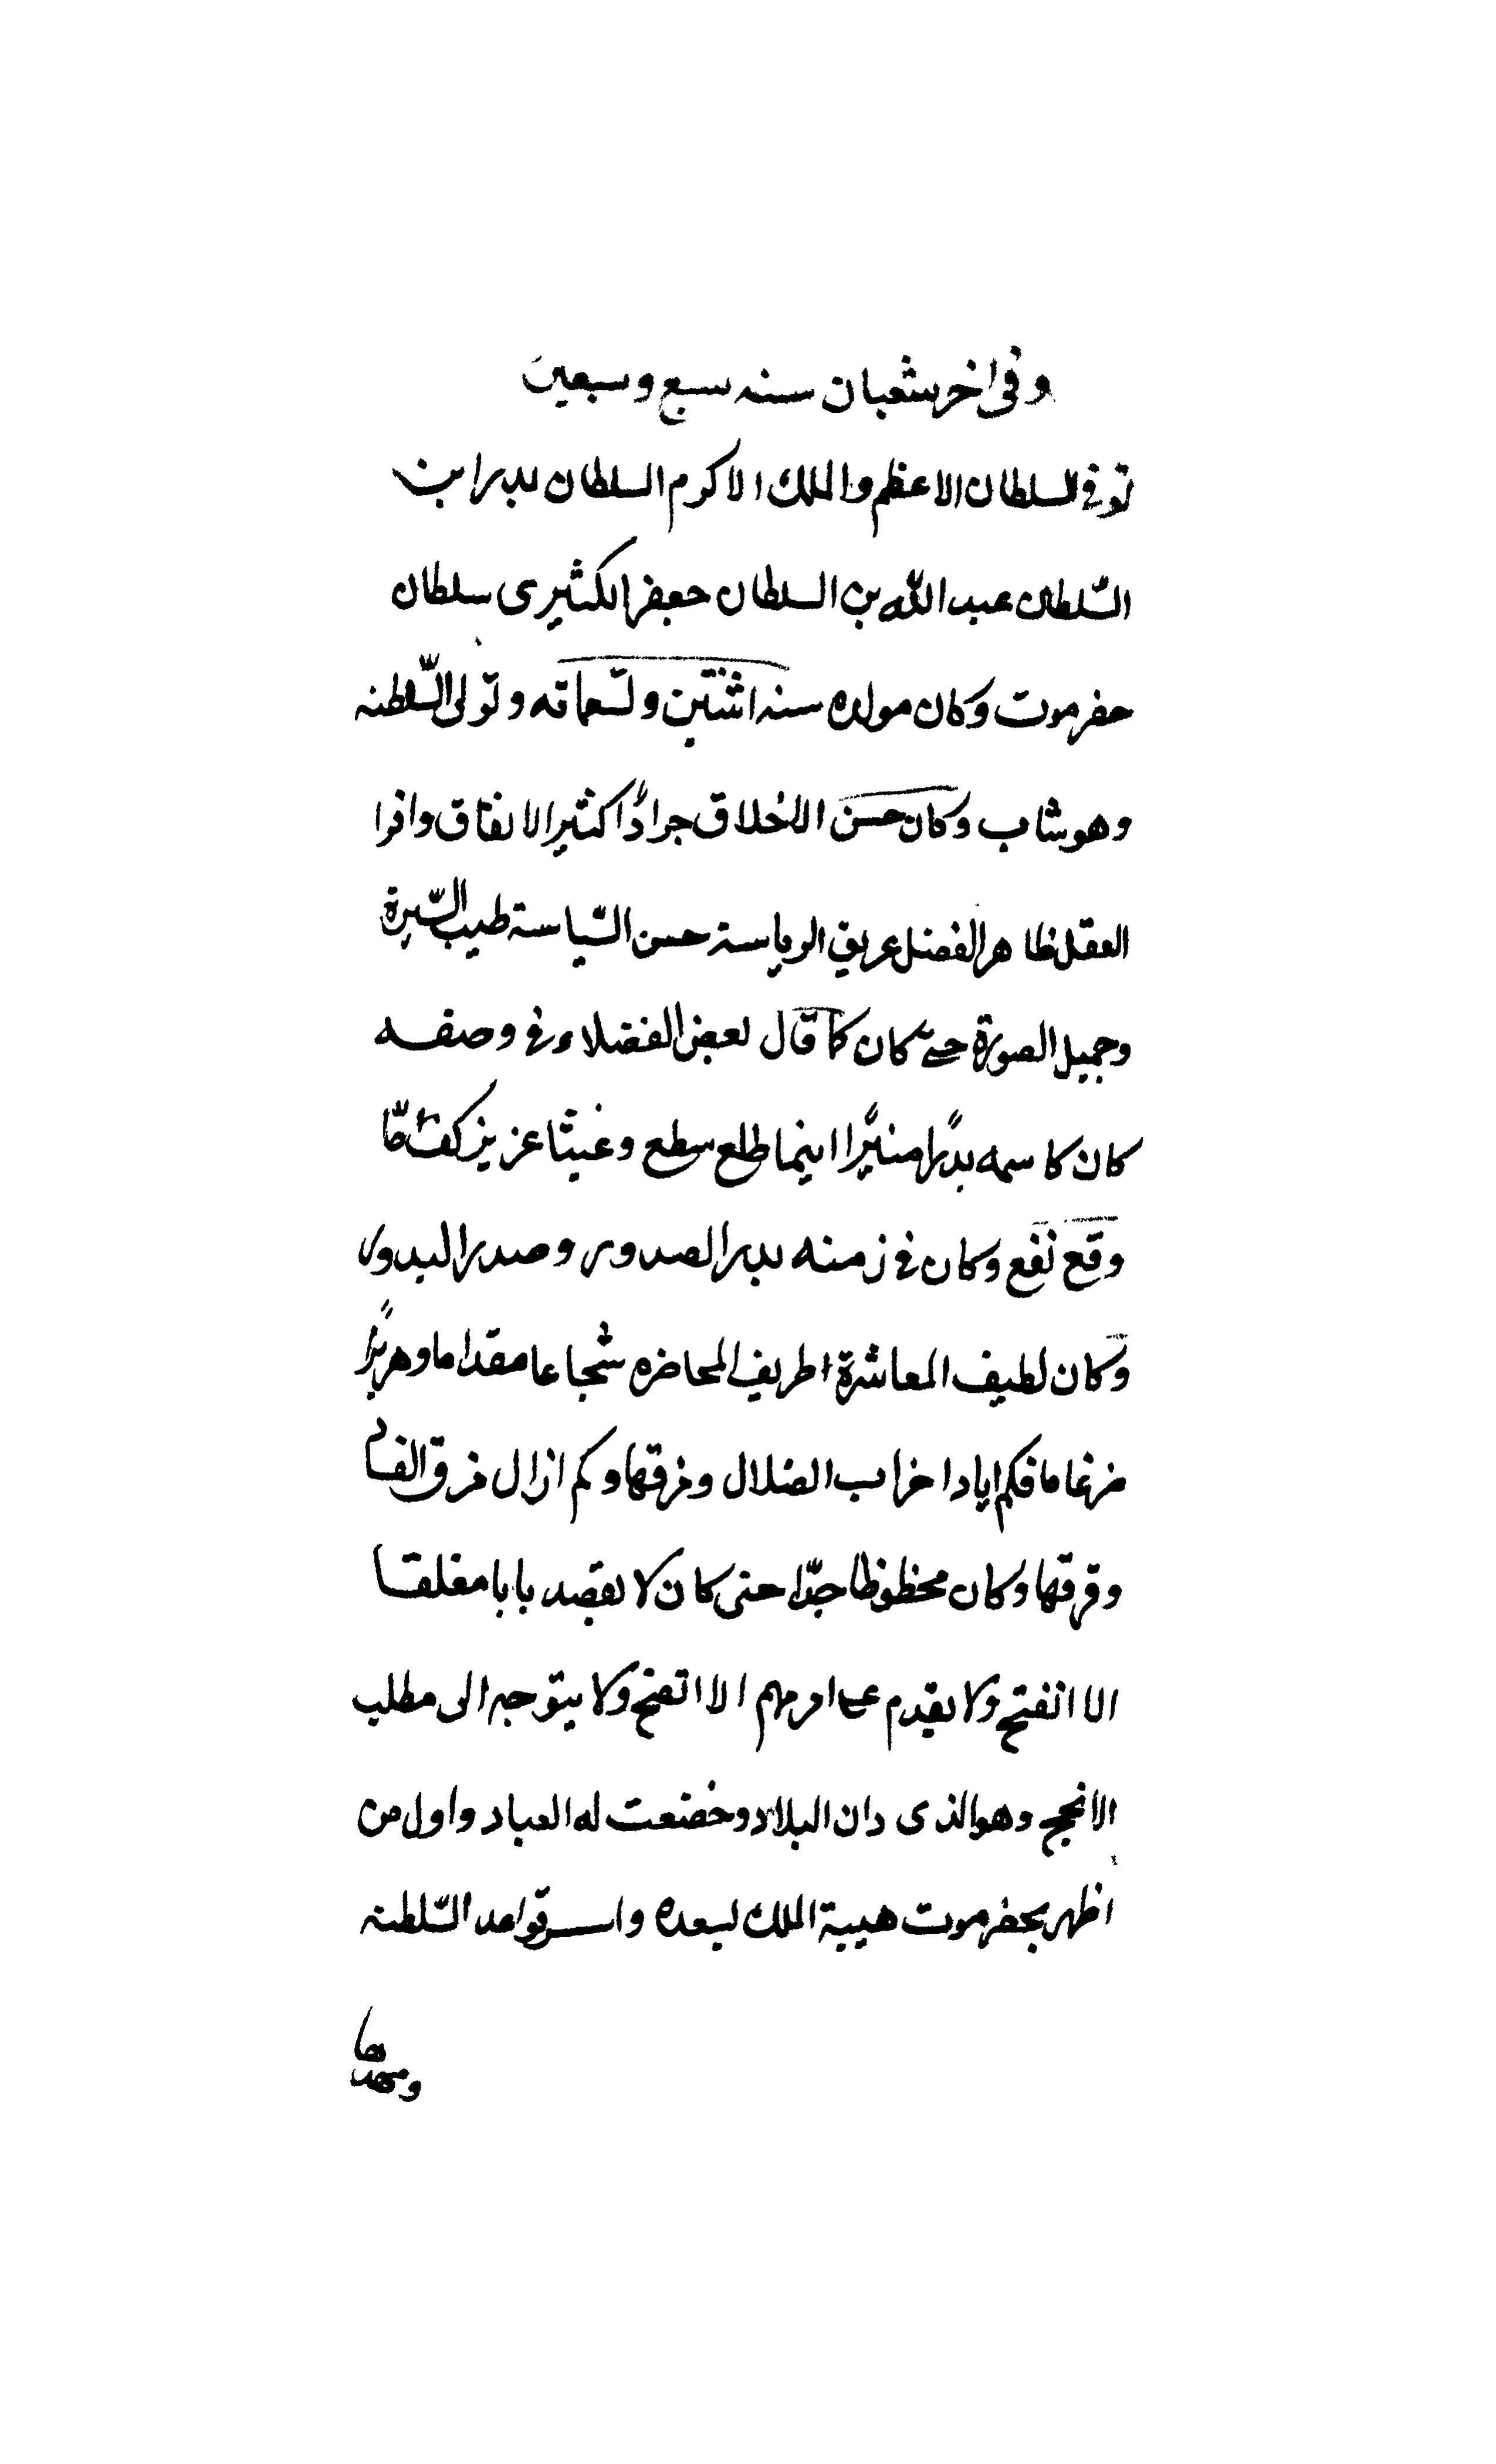 وفي اخر شعبان سنه سبع وسبعين
توفي السلطان الاعظم والملك الاكرم السلطان بدر ابن
السّلطان عبد الله بن السلطان جعفر الكثيرى سلطان
حضرموت وكان مولده سنه اثنتين وتسعمائه وتولى السّلطنه
وهو شاب وكان حسن الاخلاق جوادًا كثير الانفاق وافرا
العقل ظاهر الفضل عريق الرياسة حسن السّياسة طيب السّيرة
وجميل الصورة حتى كان كما قال بعض الفضلاء في وصفه
كان كاسمه بدرًا منيرًا اينما طلع سطع وغيثا عزيز كفّا مّا
وقع نفع وكان في زمنه بدر الصدور وصدر البدور
وكان لطيف المعاشرة ظريف المحاضره شجاعا مقداما وهزبرًا
ضرغاما فكم اباد احزاب الضلال ومزقها وكم ازال فرق الفساد
وفرقها وكان محظوظا جدّا حتى كان لا يقصد بابا مغلقا
الا انفتح ولا يقدم على امر مهم الا اتضح ولا يتوجه الى مطلب
الا نجح وهو الذى دان البلاد وخضعت له العباد واول من
اظهر بحضرموت هيبة الملك لبعده واسس قواعد السّلطنه
ومهدها